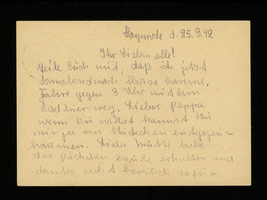 d. 25. 9. 42
Ihr Lieben alle!
Teile Euch mit, daß ich jetzt
Sonnabend nach Hause komme,
fahre gegen 3 Uhr mit dem
weg. Lieber Pappa
wenn Du willst kannst Du
mir ja ein Stückchen entgegen-
kommen. Liebe Mutti habe
das Päckchen erhalten und
danke recht herzlich dafür.